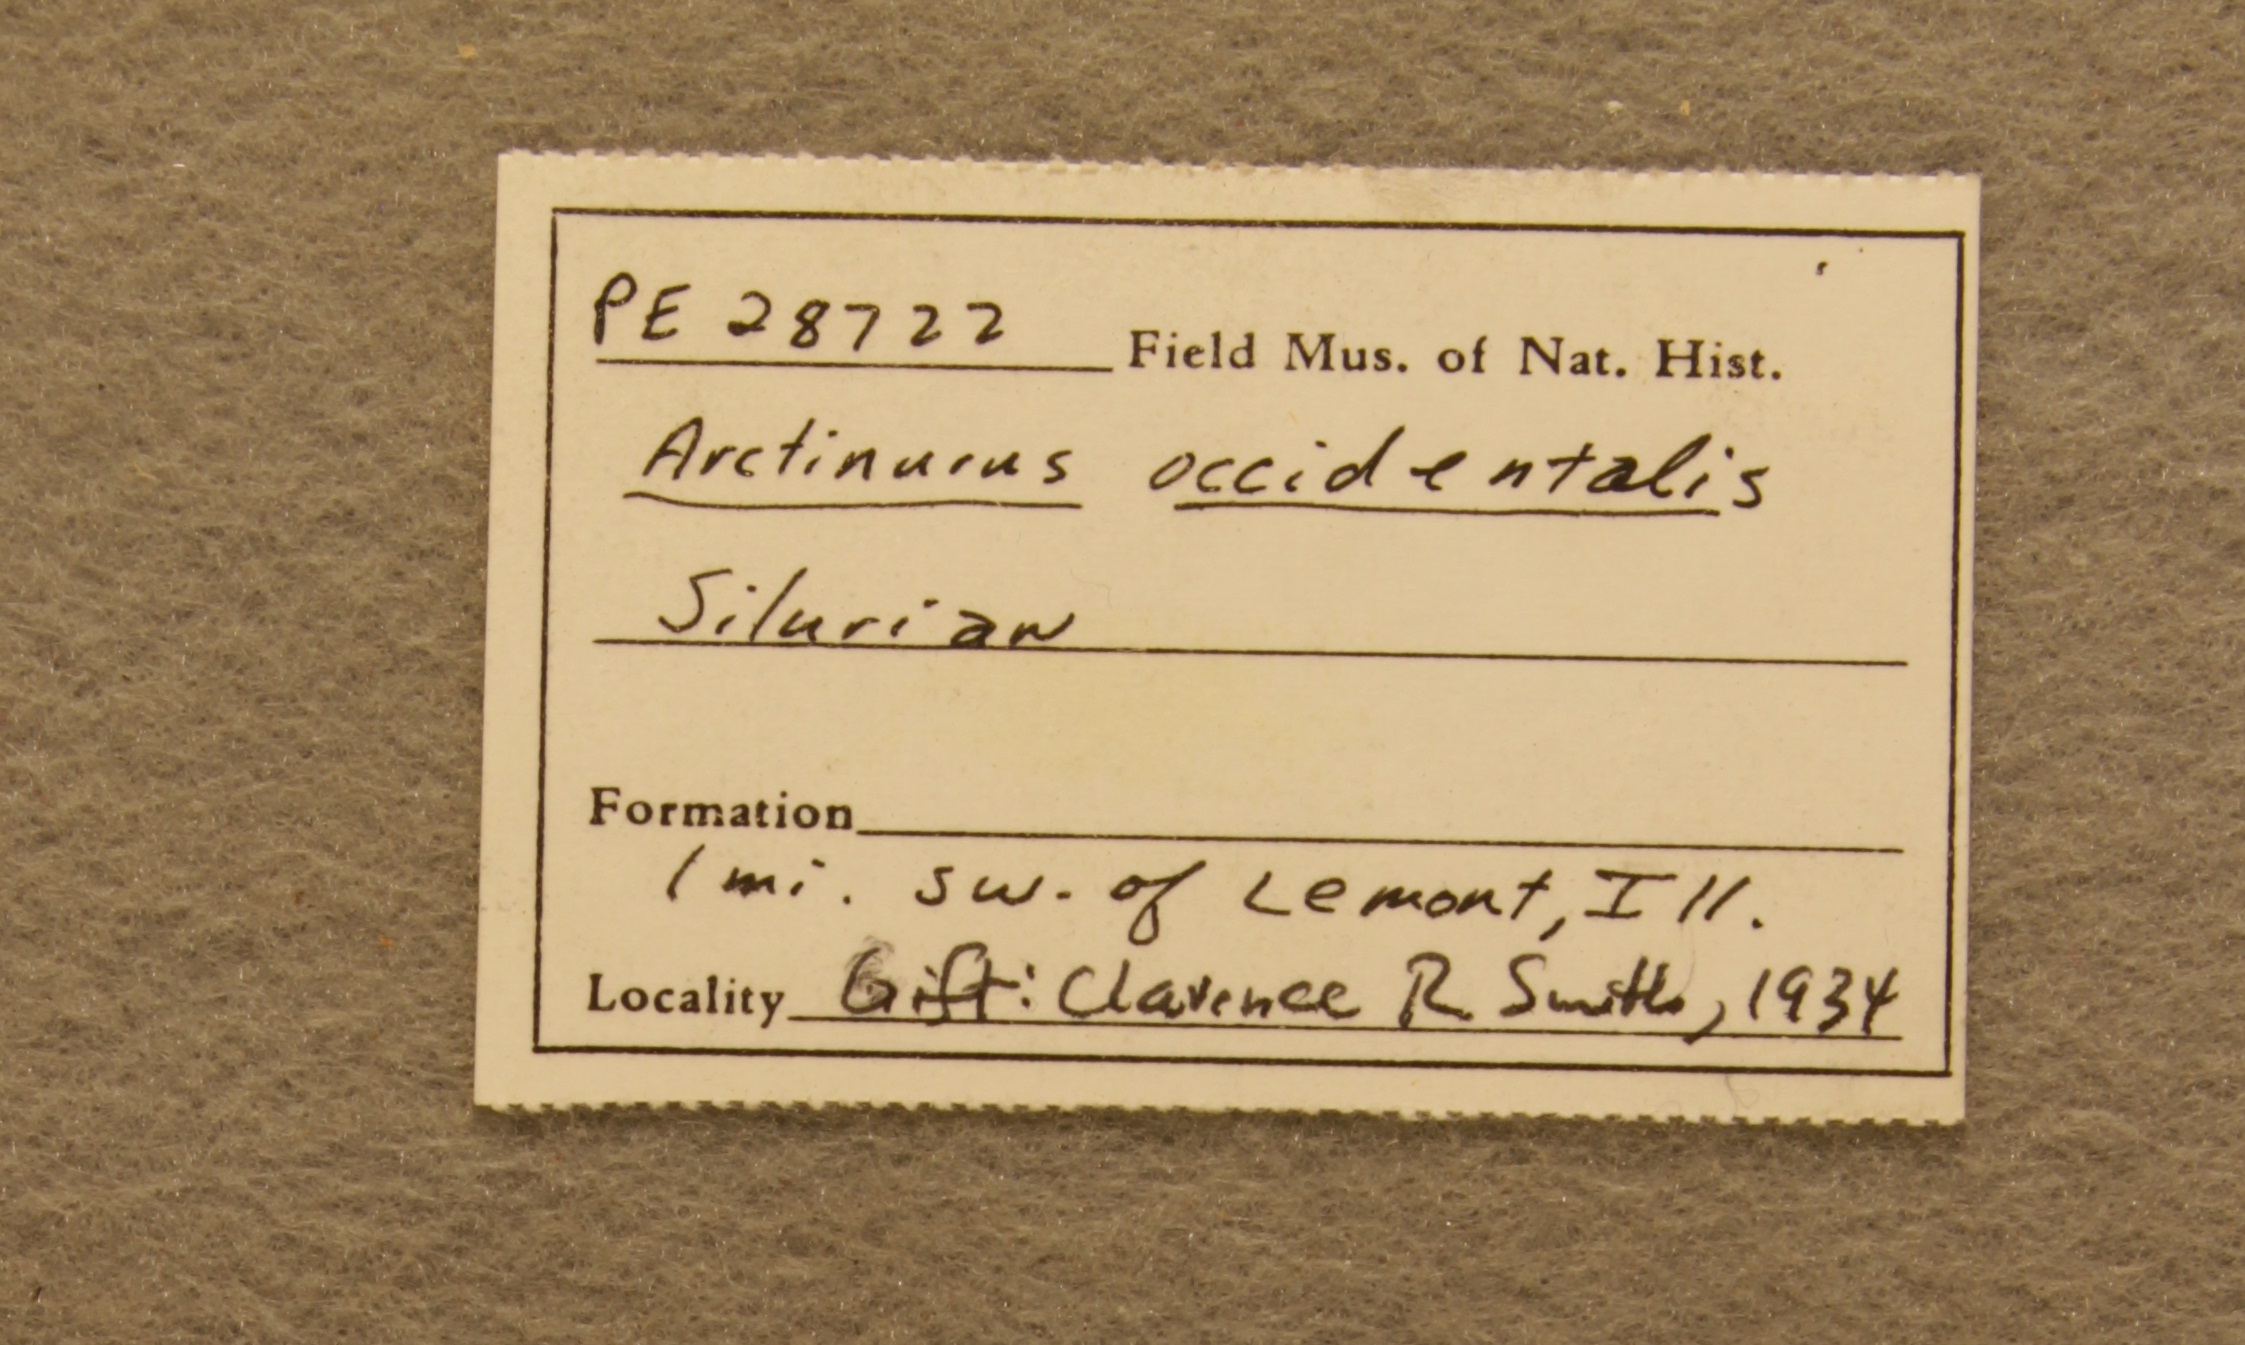 PE 28722 Field Mus. of Nat. Hist.
Arctinurus occidentalis
Silurian
Formation
1 mi. sw. of Lemont, Ill.
Locality Gift: Clarence R. Smith, 1934